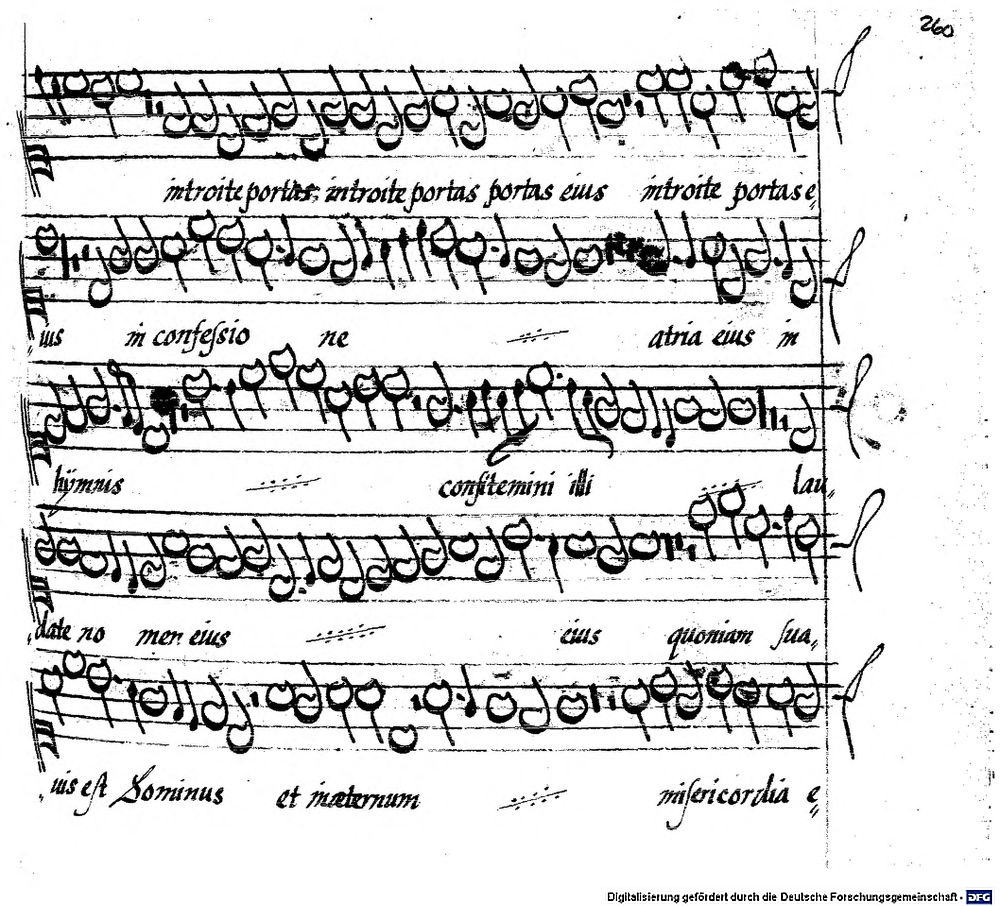 260
introite portas introite portas portas eius introite portas e
ius in confessio ne atria eius in
hÿmnis confitemini illi lau
date no men eius eius quoniam sua
uis est Dominus et inæternum misericordia e
Digitalisierung gefördert durch die Deutsche Forschungsgemeinschaft - DFG